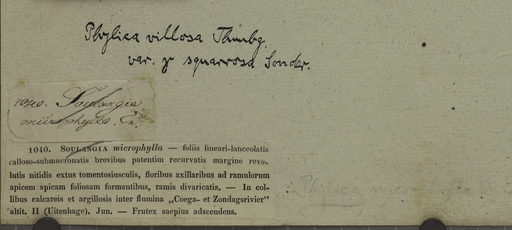 Phylica villosa Thunbg.
var. γ squarrosa Sonder.
1040. Soulangia
microphylla. E.Z.
1040. SOULANGIA microphylla — foliis lineari-lanceolatis
calloso-submucronatis brevibus patentim recurvatis margine revo-
lutis nitidis extus tomentosiusculis, floribus axillaribus ad ramulorum
apicem spicam foliosam formantibus, ramis divaricatis. — In col-
libus calcareis et argillosis inter flumina „Coega- et Zondagsrivier"
altit. II (Uitenhage). Jun. — Frutex saepius adscendens.
Phylica